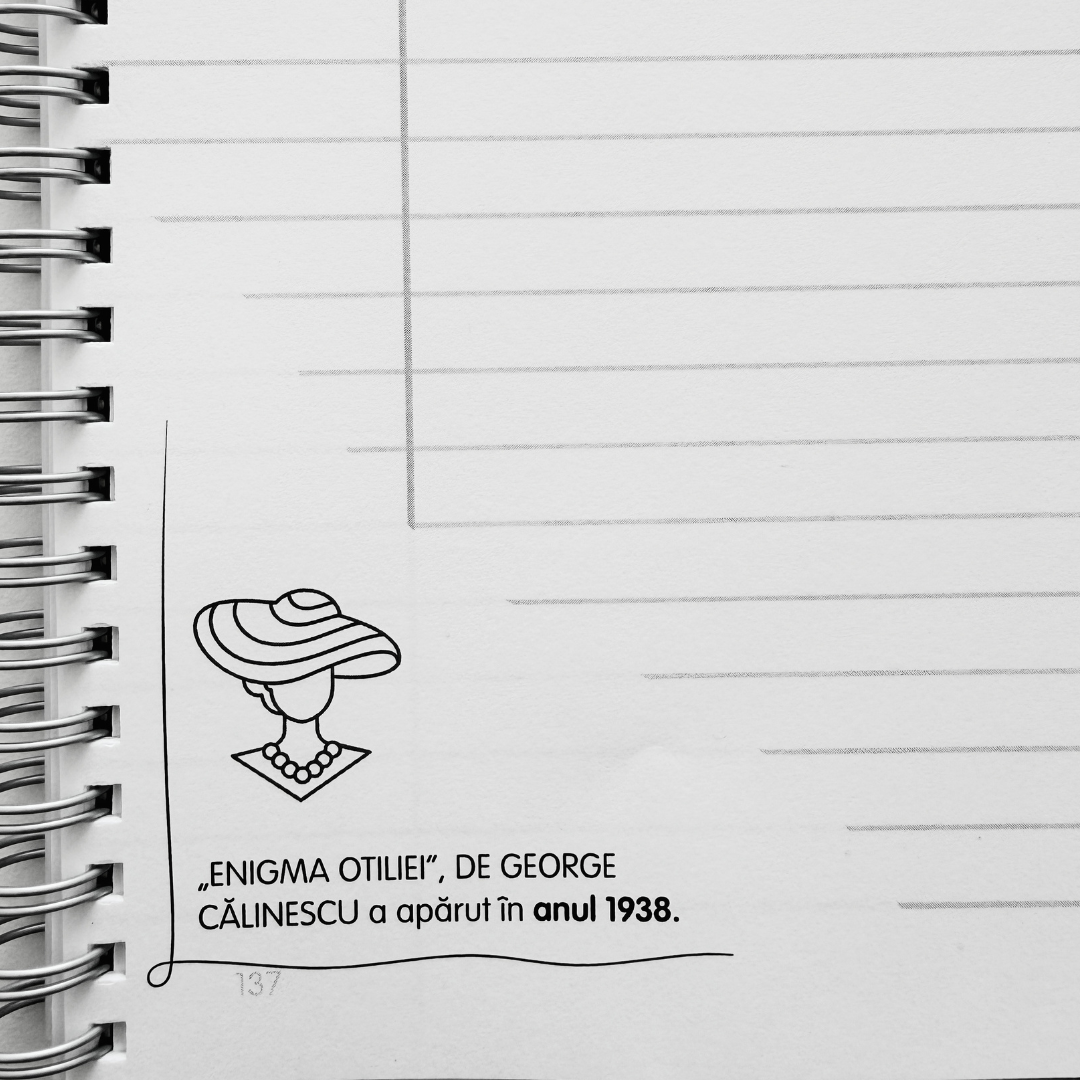 „ENIGMA OTILIEI”, DE GEORGE
CĂLINESCU a apărut în anul 1938.
137